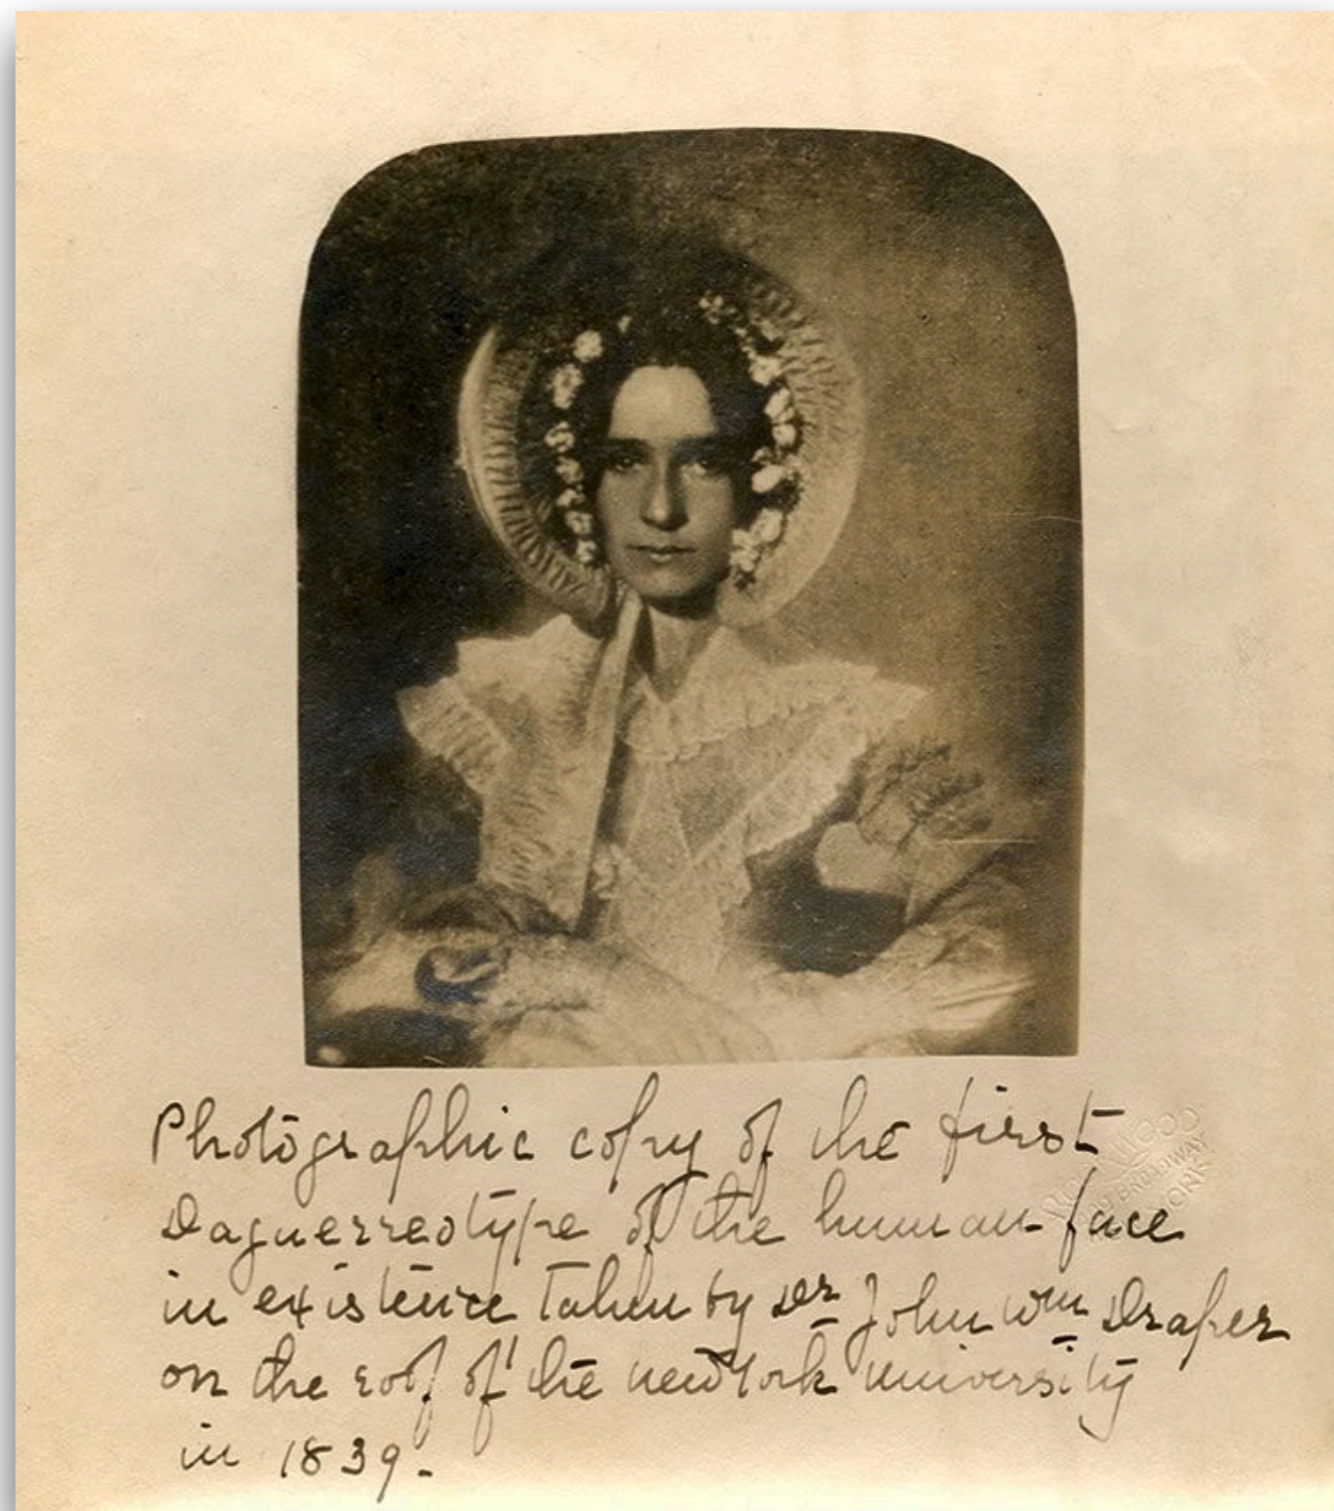 Photographic copy of the first
Daguerreotype of the human face
in existence taken by Dr John Wm Draper
on the roof of the New York University
in 1839.
WOOD
BROADWAY
YORK